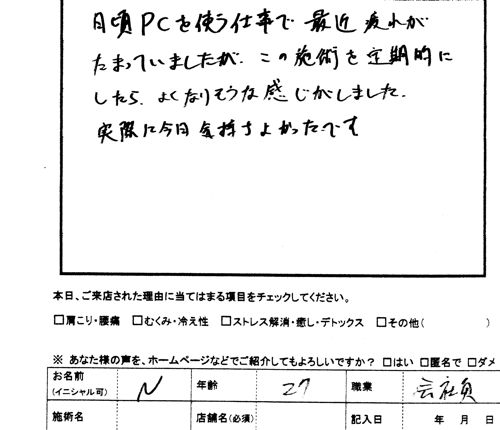 日頃PCを使う仕事で最近疲れが
たまっていましたが、この施術を定期的に
したら、よくなりそうな感じがしました。
実際に今日気持ちよかったです
本日、ご来店された理由に当てはまる項目をチェックしてください。
□肩こり・腰痛 □むくみ・冷え性 □ストレス解消・癒し・デトックス □その他( )
※ あなた様の声を、ホームページなどでご紹介してもよろしいですか? □はい □匿名で □ダメ
お名前(イニシャル可) N 年齢 27 職業 会社員
施術名 店舗名(必須) 記入日 年 月 日